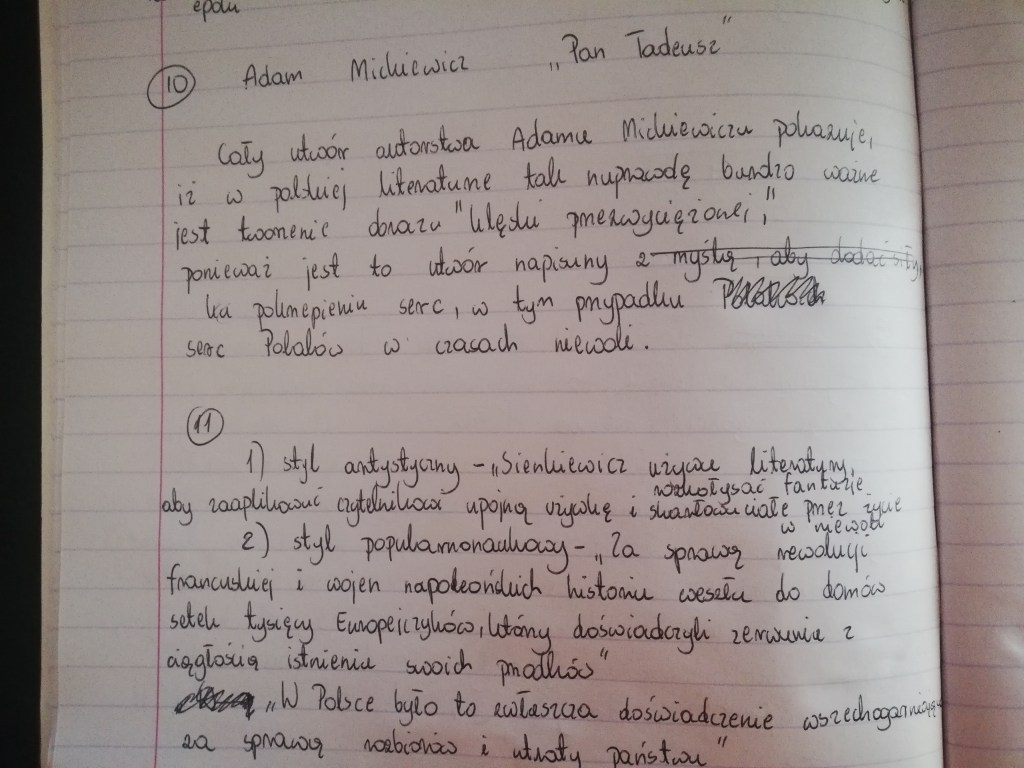 epoki
10 Adam Mickiewicz „Pan Tadeusz”
Cały utwór autorstwa Adama Mickiewicza pokazuje,
iż w polskiej literaturze tak naprawdę bardzo ważne
jest tworzenie obrazu "klęski przezwyciężonej,"
ponieważ jest to utwór napisany z myślą, aby dodać siły,
ku pokrzepieniu serc, w tym przypadku
serc Polaków w czasach niewoli.
11
1) styl artystyczny - „Sienkiewicz używa literatury,
rozkołysać fantazje
aby zaaplikować czytelnikowi upojną używkę i skarlowaciałe przez życie
w niewoli
2) styl popularnonaukowy - „Za sprawą rewolucji
francuskiej i wojen napoleońskich historia weszła do domów
setek tysięcy Europejczyków, którzy doświadczyli zerwania z
ciągłością istnienia swoich przodków”
„W Polsce było to zwłaszcza doświadczenie wszechogarniające
za sprawą rozbiorów i utraty państwa”